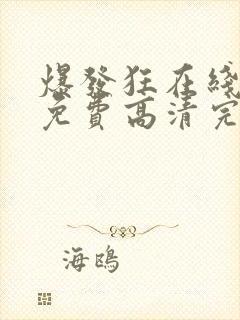 爆發狂在綫
免費高清完
海鴎